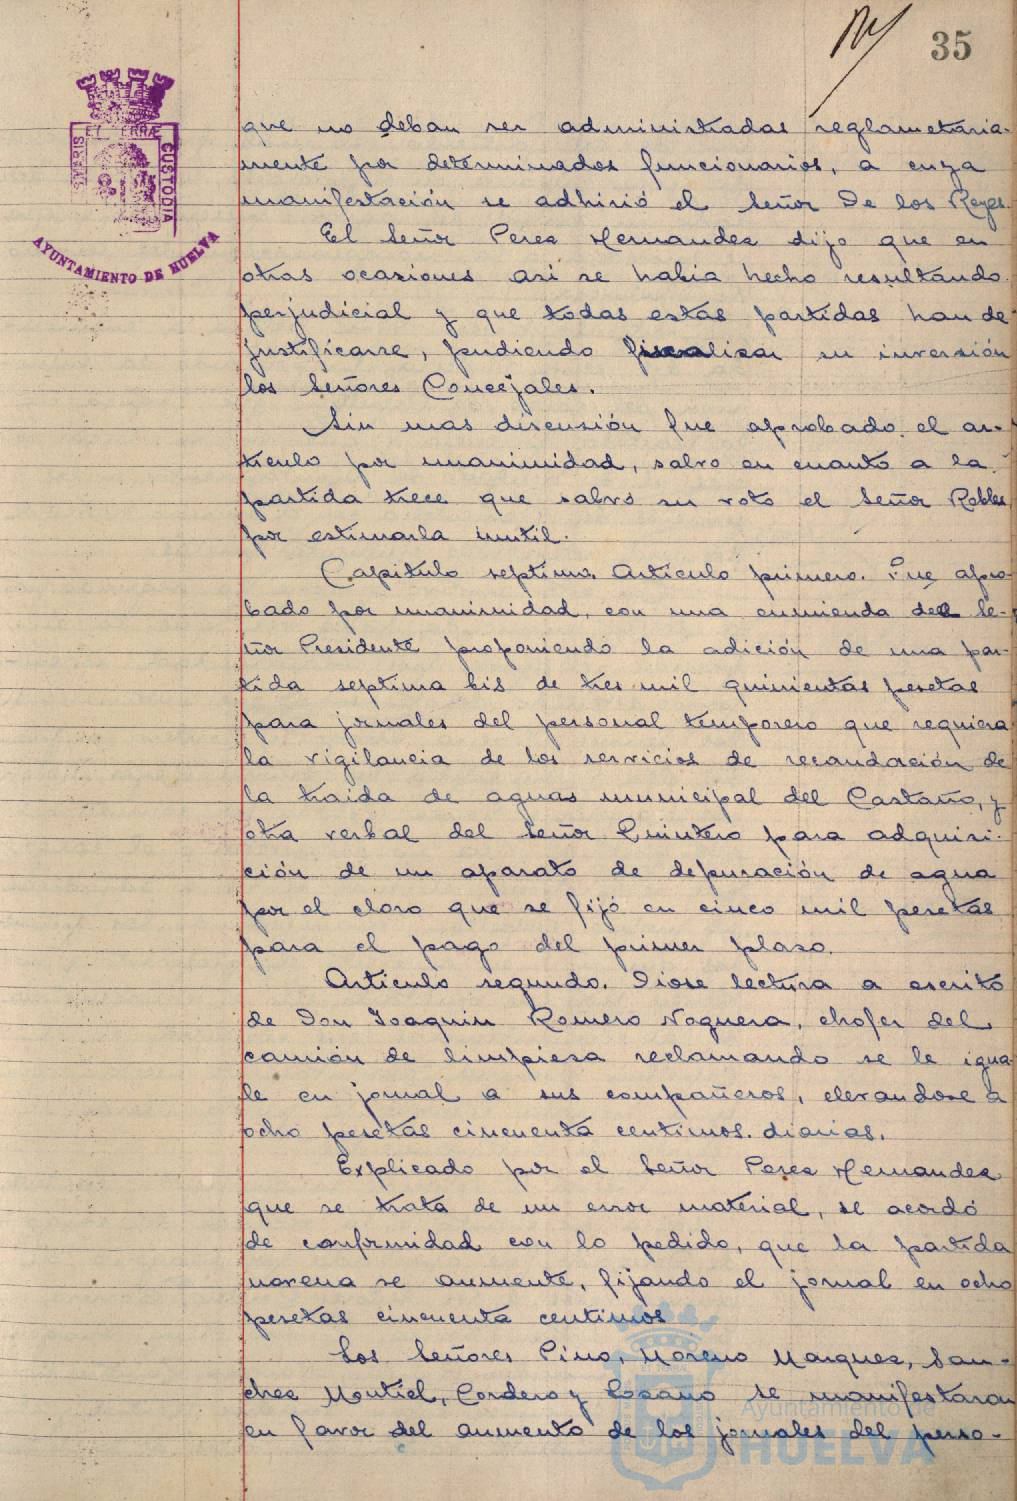 35
PORTUS MARIS ET TERRÆ CUSTODIA
AYUNTAMIENTO DE HUELVA
que no deban ser administradas reglametaria-
mente por determinados funcionarios, a cuya
manifestación se adhirió el Señor De los Reyes.
El Señor Perez Hernandez dijo que en
otras ocasiones asi se habia hecho resultando
perjudicial y que todas estas partidas han de
justificarse, pudiendo fiscalizar su inversión
los Señores Concejales.
Sin mas discusión fue aprobado el ar-
ticulo por unanimidad, salvo en cuanto a la
partida trece que salvó su voto el Señor Robles
por estimarla inutil.
Capitulo septimo. Articulo primero. Fue apro-
bado por unanimidad, con una enmienda del Se-
ñor Presidente proponiendo la adición de una par-
tida septima bis de tres mil quinientas pesetas
para jornales del personal temporero que requiera
la vigilancia de los servicios de recaudación de
la traida de aguas municipal del Castaño, y
otra verbal del Señor Quintero para adquisi-
ción de un aparato de depuración de agua
por el cloro que se fijó en cinco mil pesetas
para el pago del primer plazo.
Articulo segundo. Diose lectura a escrito
de Don Joaquin Romero Noguera, chofer del
camión de limpieza reclamando se le igua-
le en jornal a sus compañeros, elevandose a
ocho pesetas cincuenta centimos diarias.
Explicado por el Señor Perez Hernandez
que se trata de un error material, se acordó
de conformidad con lo pedido, que la partida
novena se aumente, fijando el jornal en ocho
pesetas cincuenta centimos
Los Señores Pino, Moreno Marquez, San-
chez Montiel, Cordero y Lozano se manifestaron
en favor del aumento de los jornales del perso-
Ayuntamiento de
HUELVA